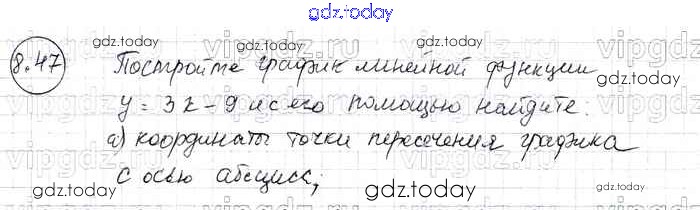 gdz.today
8.47
gdz.today
gdz.today
Постройте график линейной функции
y = 3x - 9 и с его помощью найдите:
а) координаты точки пересечения графика
с осью абсцисс;
gdz.today
gdz.today
gdz.today
gdz.today